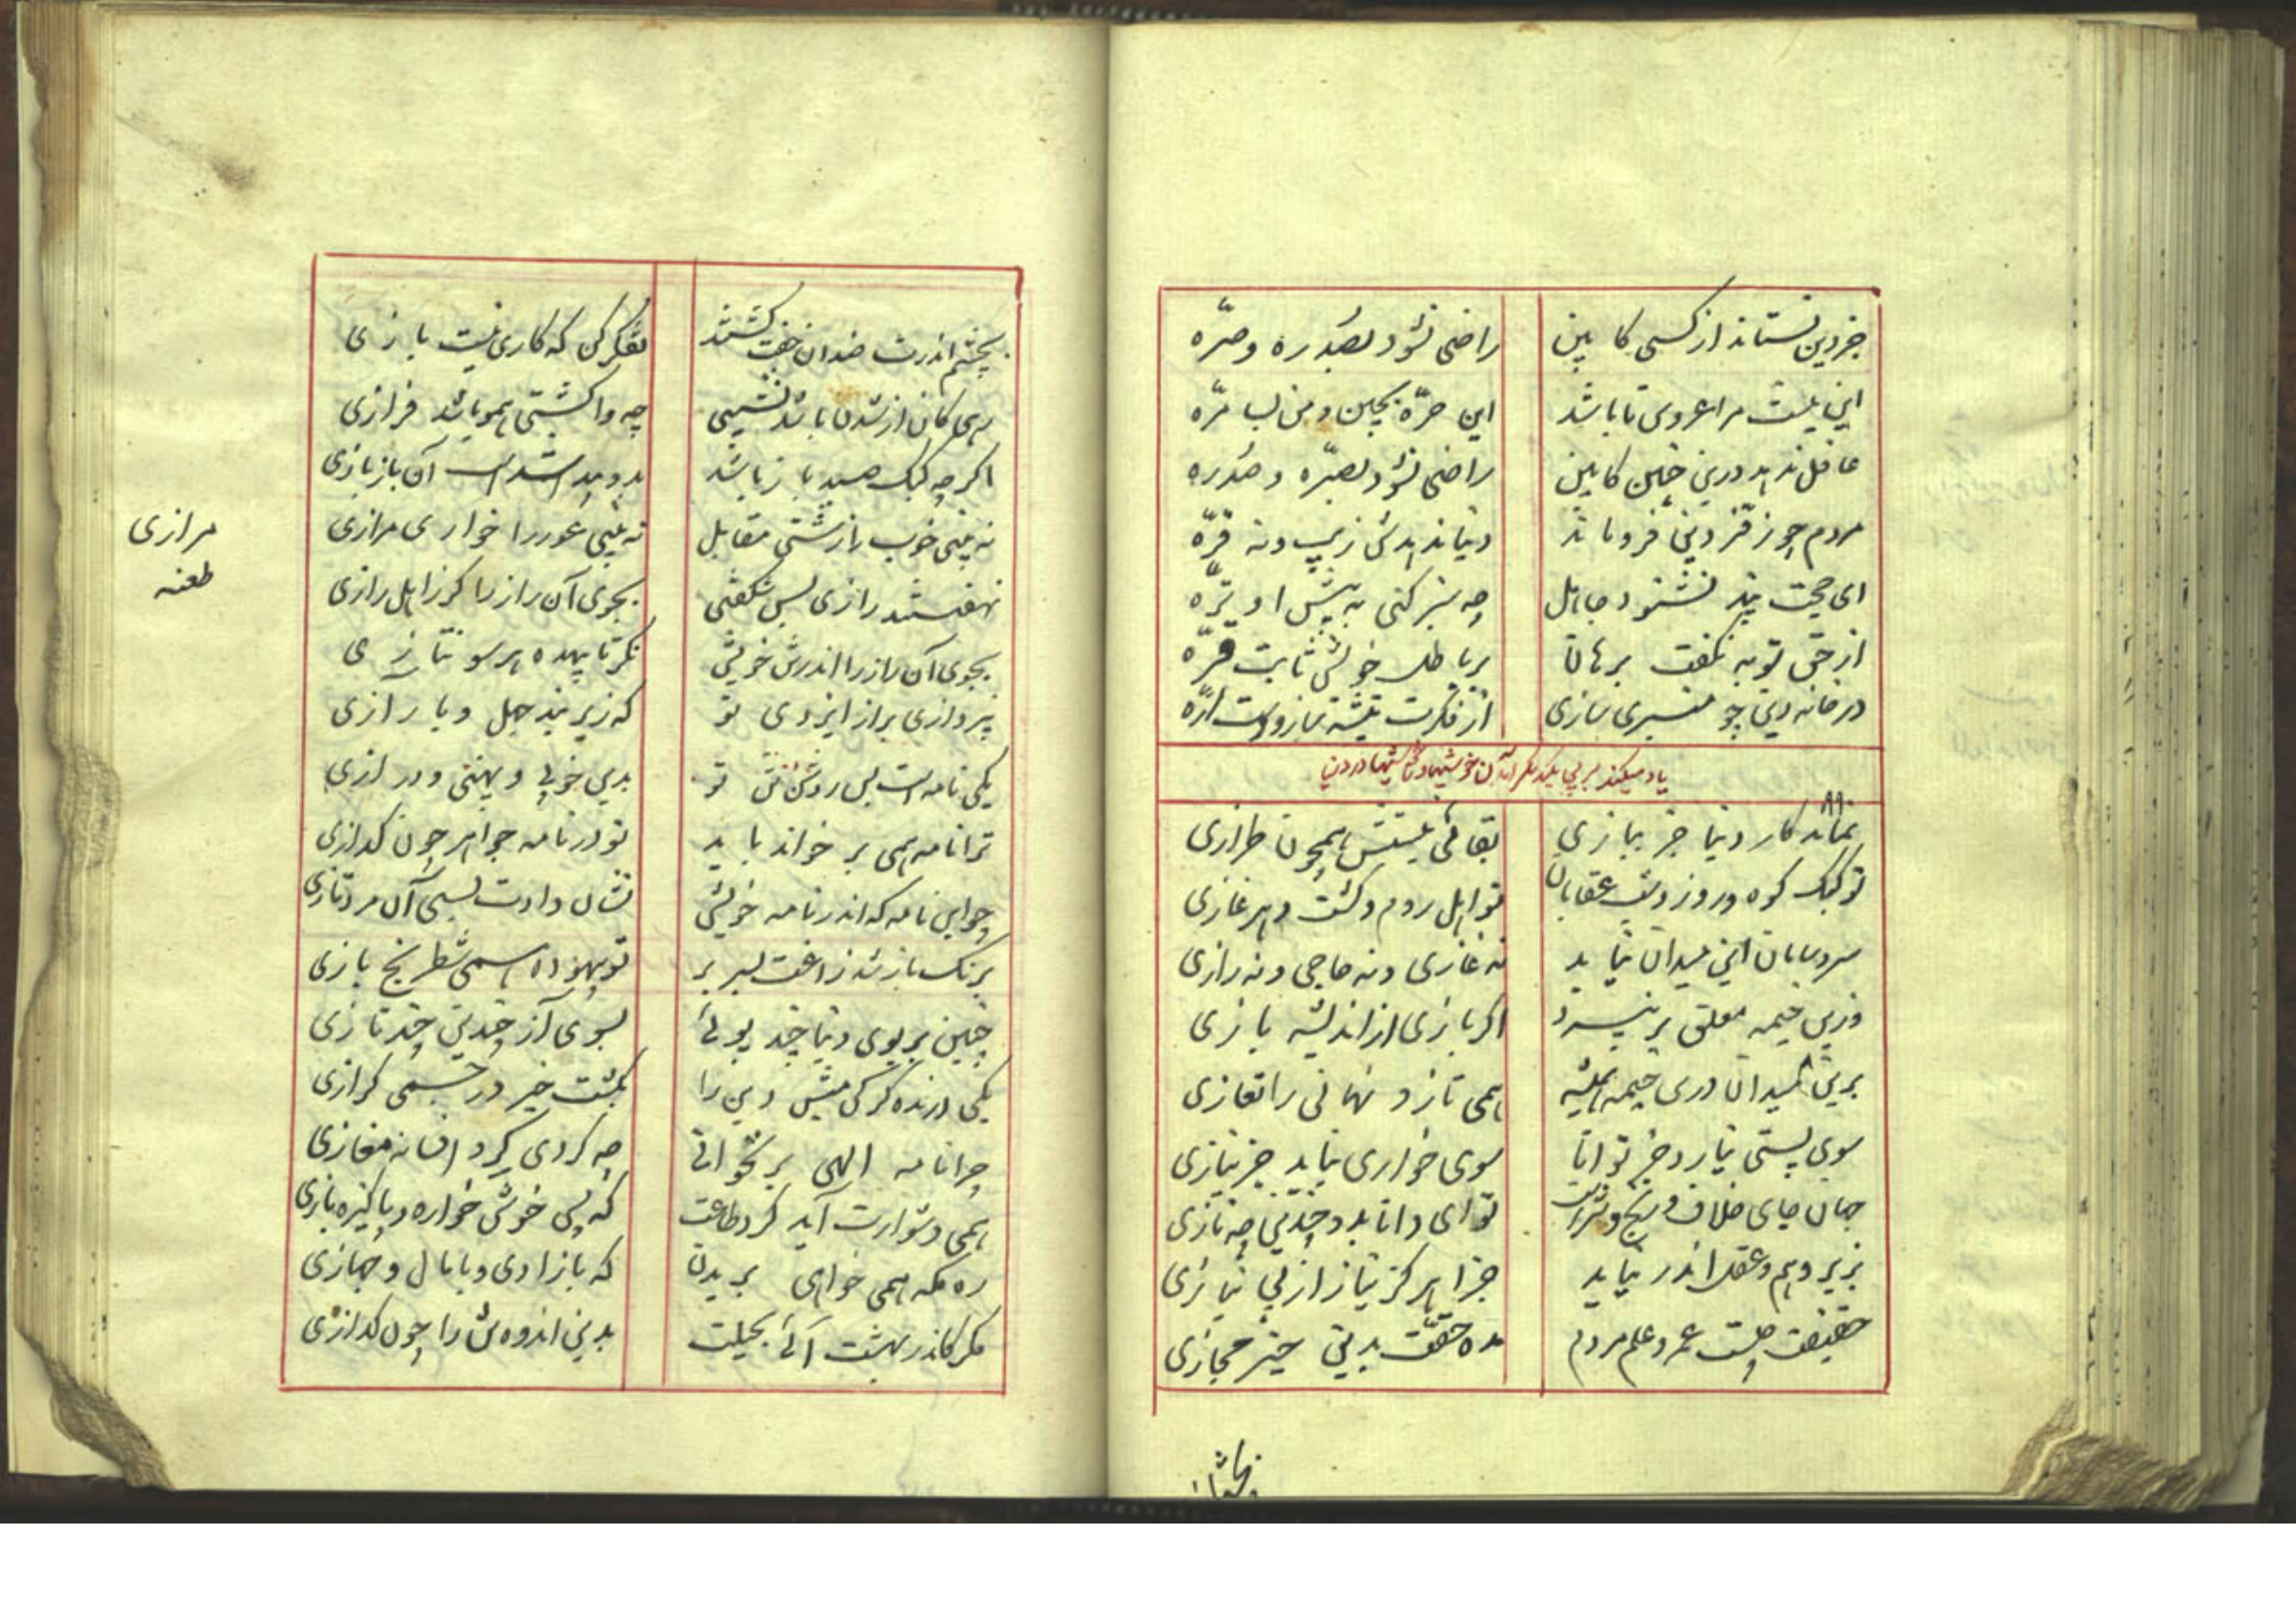 جز دین نستاند از کسی کابین راضی نشود بصد ره و صرّه
این نیست مرا عروس تا باشد این حرّه بچین و من بسامرّه
غافل ندهد درین چنین کابین راضی نشود بصرّه و صدره
مردم چو ز فرّ دین فرو ماند دنیا ندهدش زیب و نه فرّه
ای حجت پند نشنود جاهل چه سبز کنی به پیش او ترّه
از حق تو به نگفت برهان بر باطل خویش ثابت قرّه
در خانه دین چو منبری سازی از فکرت تیشه ساز وست ارّه
نماند کار دنیا جز ببازی بقائی نیستش همچون طرازی
تو کبک کوه و روز و شب عقابان تو اهل روم و گشت دهر غازی
سر و سامان این میدان نیابد نه غازی و نه حاجی و نه رازی
وزین خیمه معلق بر نپرد اگر بازی از اندیشه بازی
برین میدان درین خیمه همیشه همی تازد نهانی را تغازی
سوی پستی نیارد جز توانا سوی خواری نیابد جز نیازی
جهان جای خلاف و رنج و شر است تو ای دانا بدو چندین چه نازی
بزیر وهم و عقل اندر نیاید جز ا هرگز نیاز از بی نیازی
حقیقت چیست عمر و علم مردم مده حقّت بدین چیز مجازی
بچشم اندرت ضدان جفت گشتند تفکر کن که کاری نیست بازی
بهی کان از شدن باشد نشیبی چه واگشتی همو باشد فرازی
اگرچه کبک صید باز باشد بدو صید است آن باز بازی
نه بینی خوب باز زشتی مقابل نه بینی عور را خواری مرازی
نهفتستند رازی بس شگفتی بجوی آن راز را گر زاهل رازی
بجوی آن راز را اندر تن خویش نگر تا بیهده هر سو نتازی
بپردازی براز ایزدی تو که زیر بند جهل و بار آزی
یکی نامه است بس روشن تن تو بدین خوبی و پهنی و درازی
ترا نامه همی بر خواند باید تو در نامه چو آهو چون گدازی
چو این نامه که اندر نامه خویش نشان دادت بسی آن مرد تازی
برنگ باز شد زاغت بسر بر تو بیهوده همی شطرنج بازی
چنین بر بوی دنیا چند پوئی بسوی آز چندین چند تازی
یکی درنده گرگی میش دین را بگشت خیر در خشمی گرازی
چرا نامه الهی بر نخوانی چه گردی گرد افسانه مغازی
همی دشوارت آید کرد طاعت که بس خوش خواره و پاکیزه بازی
ره مکه همی خواهی بریدن که با زادی و با بال و جهازی
مگر کاندر بهشت آئی بحیلت بدین اندوه تن را چون گدازی
مرازی
طعنه